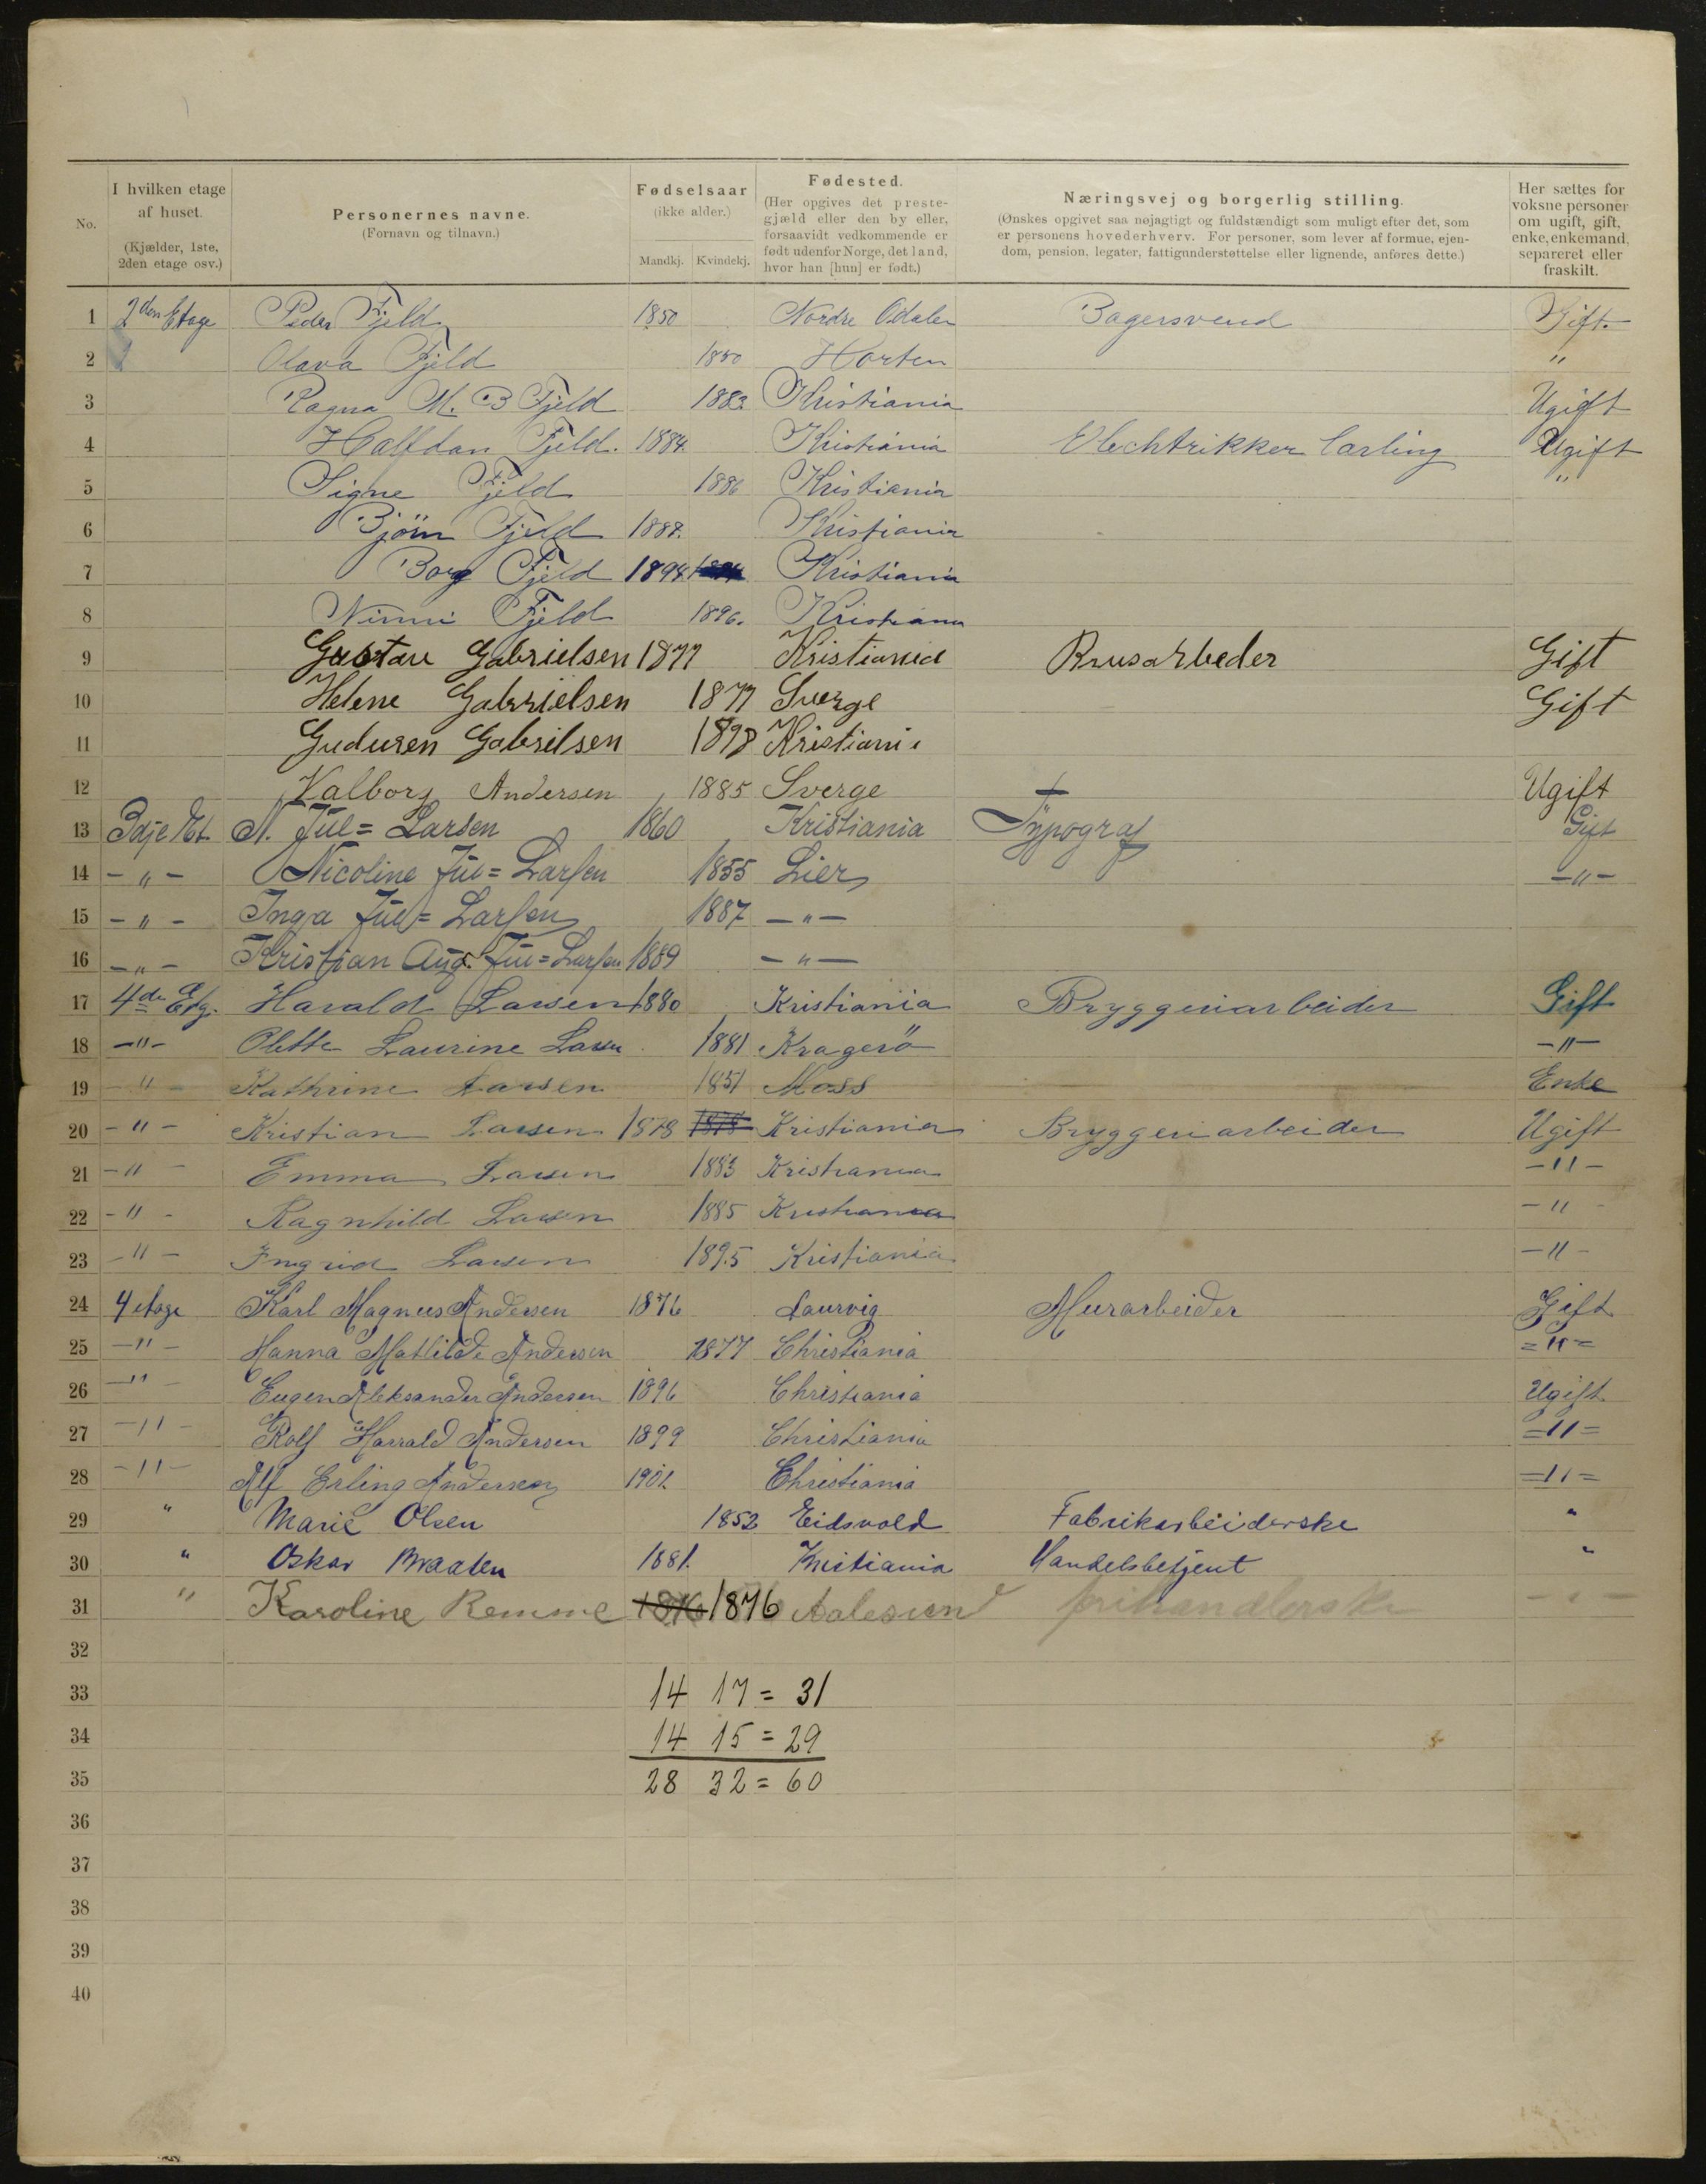 No.
I hvilken etage af huset.
(Kjælder, 1ste, 2den etage osv.)
Personernes navne.
(Fornavn og tilnavn.)
Fødselsaar
(ikke alder.)
Mandkj. Kvindekj.
Fødested.
(Her opgives det prestegjæld eller den by eller, forsaavidt vedkommende er født udenfor Norge, det land, hvor han [hun] er født.)
Næringsvej og borgerlig stilling.
(Ønskes opgivet saa nøjagtigt og fuldstændigt som muligt efter det, som er personens hovederhverv. For personer, som lever af formue, ejendom, pension, legater, fattigunderstøttelse eller lignende, anføres dette.)
Her sættes for voksne personer om ugift, gift, enke, enkemand, separeret eller fraskilt.
1 2den Etage Peder Fjeld 1850 Nordre Odalen Bagersvend Gift.
2 Olava Fjeld 1850 Horten "
3 Ragna M. B Fjeld 1883 Kristiania Ugift
4 Halfdan Fjeld. 1884. Kristiania Elechtrikker Lærling Ugift
5 Signe Fjeld 1886 Kristiania "
6 Bjöm Fjeld 1888. Kristiania
7 Borg Fjeld 1894 Kristiania
8 Ninni Fjeld 1896. Kristiania
9 Gustav Gabrielsen 1877 Kristiania Brusarbeder Gift
10 Helene Gabrielsen 1877 Sverge Gift
11 Guduren Gabrilsen 1898 Kristiani
12 Valborg Andersen 1885 Sverge + Ugift
13 3dje Et. N. Jul=Larsen 1860 Kristiania Typograf Gift
14 -"- Nicoline Jul=Larsen 1855 Lier -"-
15 -"- Inga Jul=Larsen 1887 -"-
16 -"- Kristian Aug. Jul=Larsen 1889 -"-
17 4de Etg. Harald Larsen 1880 Kristiania Bryggeriarbeider Gift
18 -"- Olette Laurine Larsen 1881 Kragerö -"-
19 -"- Kathrine Larsen 1851 Moss Enke
20 -"- Kristian Larsen 1878 1878 Kristiania Bryggeriarbeider Ugift
21 -"- Emma Larsen 1883 Kristiania -"-
22 -"- Ragnhild Larsen 1885 Kristiania -"-
23 -"- Ingrid Larsen 1895 Kristiania -"-
24 4 etage Karl Magnus Andersen 1876 Laurvig Murarbeider Gift
25 -"- Hanna Mathilde Andersen 1877 Christiania ="=
26 -"- Eugen Aleksander Andersen 1896 Christiania Ugift
27 -"- Rolf Harrald Andersen 1899 Christiania ="=
28 -"- Alf Erling Andersen 1901 Christiania ="=
29 " Marie Olsen 1852 Eidsvold Fabrikarbeiderske "
30 " Oskar Braaten 1881. Kristiania Handelsbetjent "
31 " Karoline Remme 1876 1876 Aalesund -"-
32
33 14 17 = 31
34 14 15 = 29
35 28 32 = 60
36
37
38
39
40